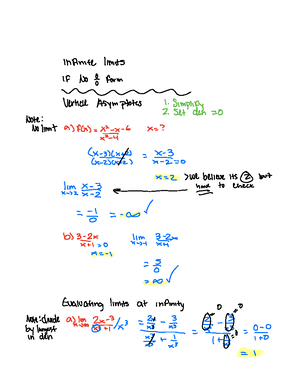 Infinite limits
IF No 0/0 form
Vertical Asymptotes
1. Simplify
2. Set den =0
Note:
No limit
a) f(x) = x²-x-6 / x²-4   x=?
(x-3)(x+2) / (x-2)(x+2) = x-3 / x-2=0
x=2 > we believe its 2 but
hard to check
lim x→2 x-3 / x-2
= -1/0 = -∞ ✓
b) 3-2x / x+1=0   lim x→-1 3-2x / x+1
x=-1
= 5/0
= ∞ ✓
Evaluating limits at infinity
Note: divide
by largest
in den
a) lim 2x-3 / x³+1 /x³ = 2x/x³ - 3/x³ / x³/x³ + 1/x³ = 0-0 / 1+0
= 1